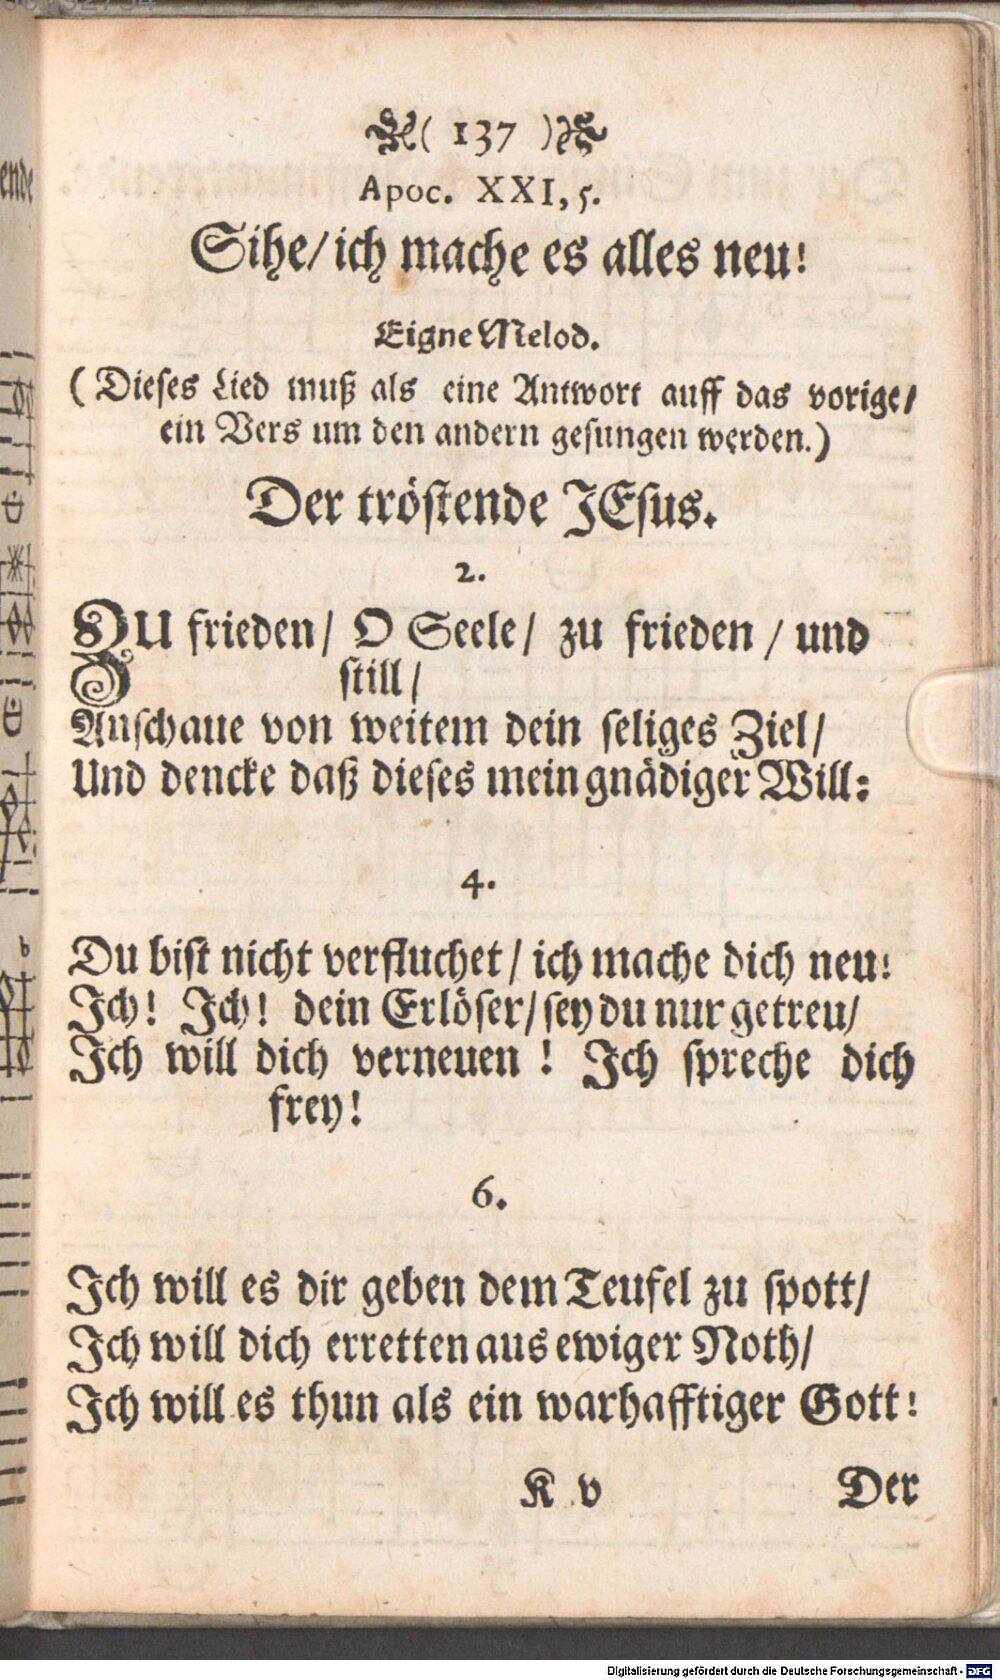 ( 137 )
Apoc. XXI, 5.
Sihe/ ich mache es alles neu!
Eigne Melod.
(Dieses Lied muß als eine Antwort auff das vorige/
ein Vers um den andern gesungen werden.)
Der tröstende JEsus.
2.
ZU frieden/ O Seele/ zu frieden / und
still/
Anschaue von weitem dein seliges Ziel/
Und dencke daß dieses mein gnädiger Will:
4.
Du bist nicht verfluchet/ ich mache dich neu!
Ich! Ich! dein Erlöser/ sey du nur getreu/
Ich will dich verneuen ! Ich spreche dich
frey!
6.
Ich will es dir geben dem Teufel zu spott/
Ich will dich erretten aus ewiger Noth/
Ich will es thun als ein warhafftiger Gott!
K v Der
ende
Digitalisierung gefördert durch die Deutsche Forschungsgemeinschaft - DFG